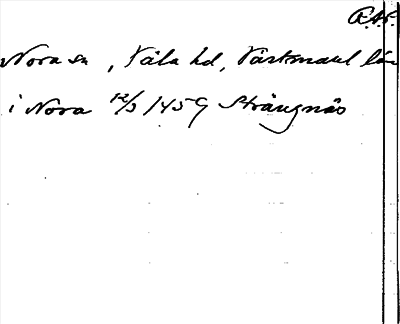 R.A.P.
Nora sn, Våla hd, Västmanl län
i Nora 12/3 1459 Strängnäs